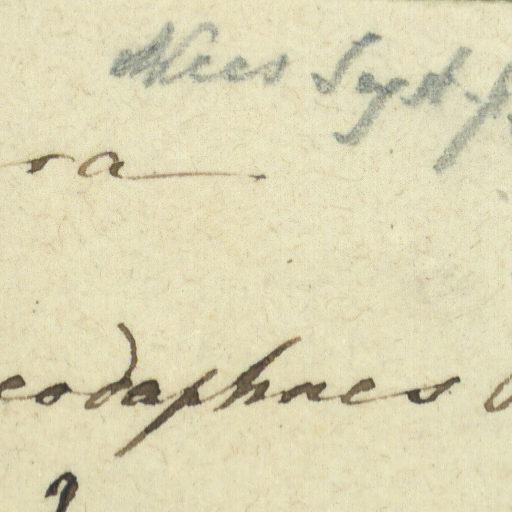 Nees Syst. p
ra
eodaphnes